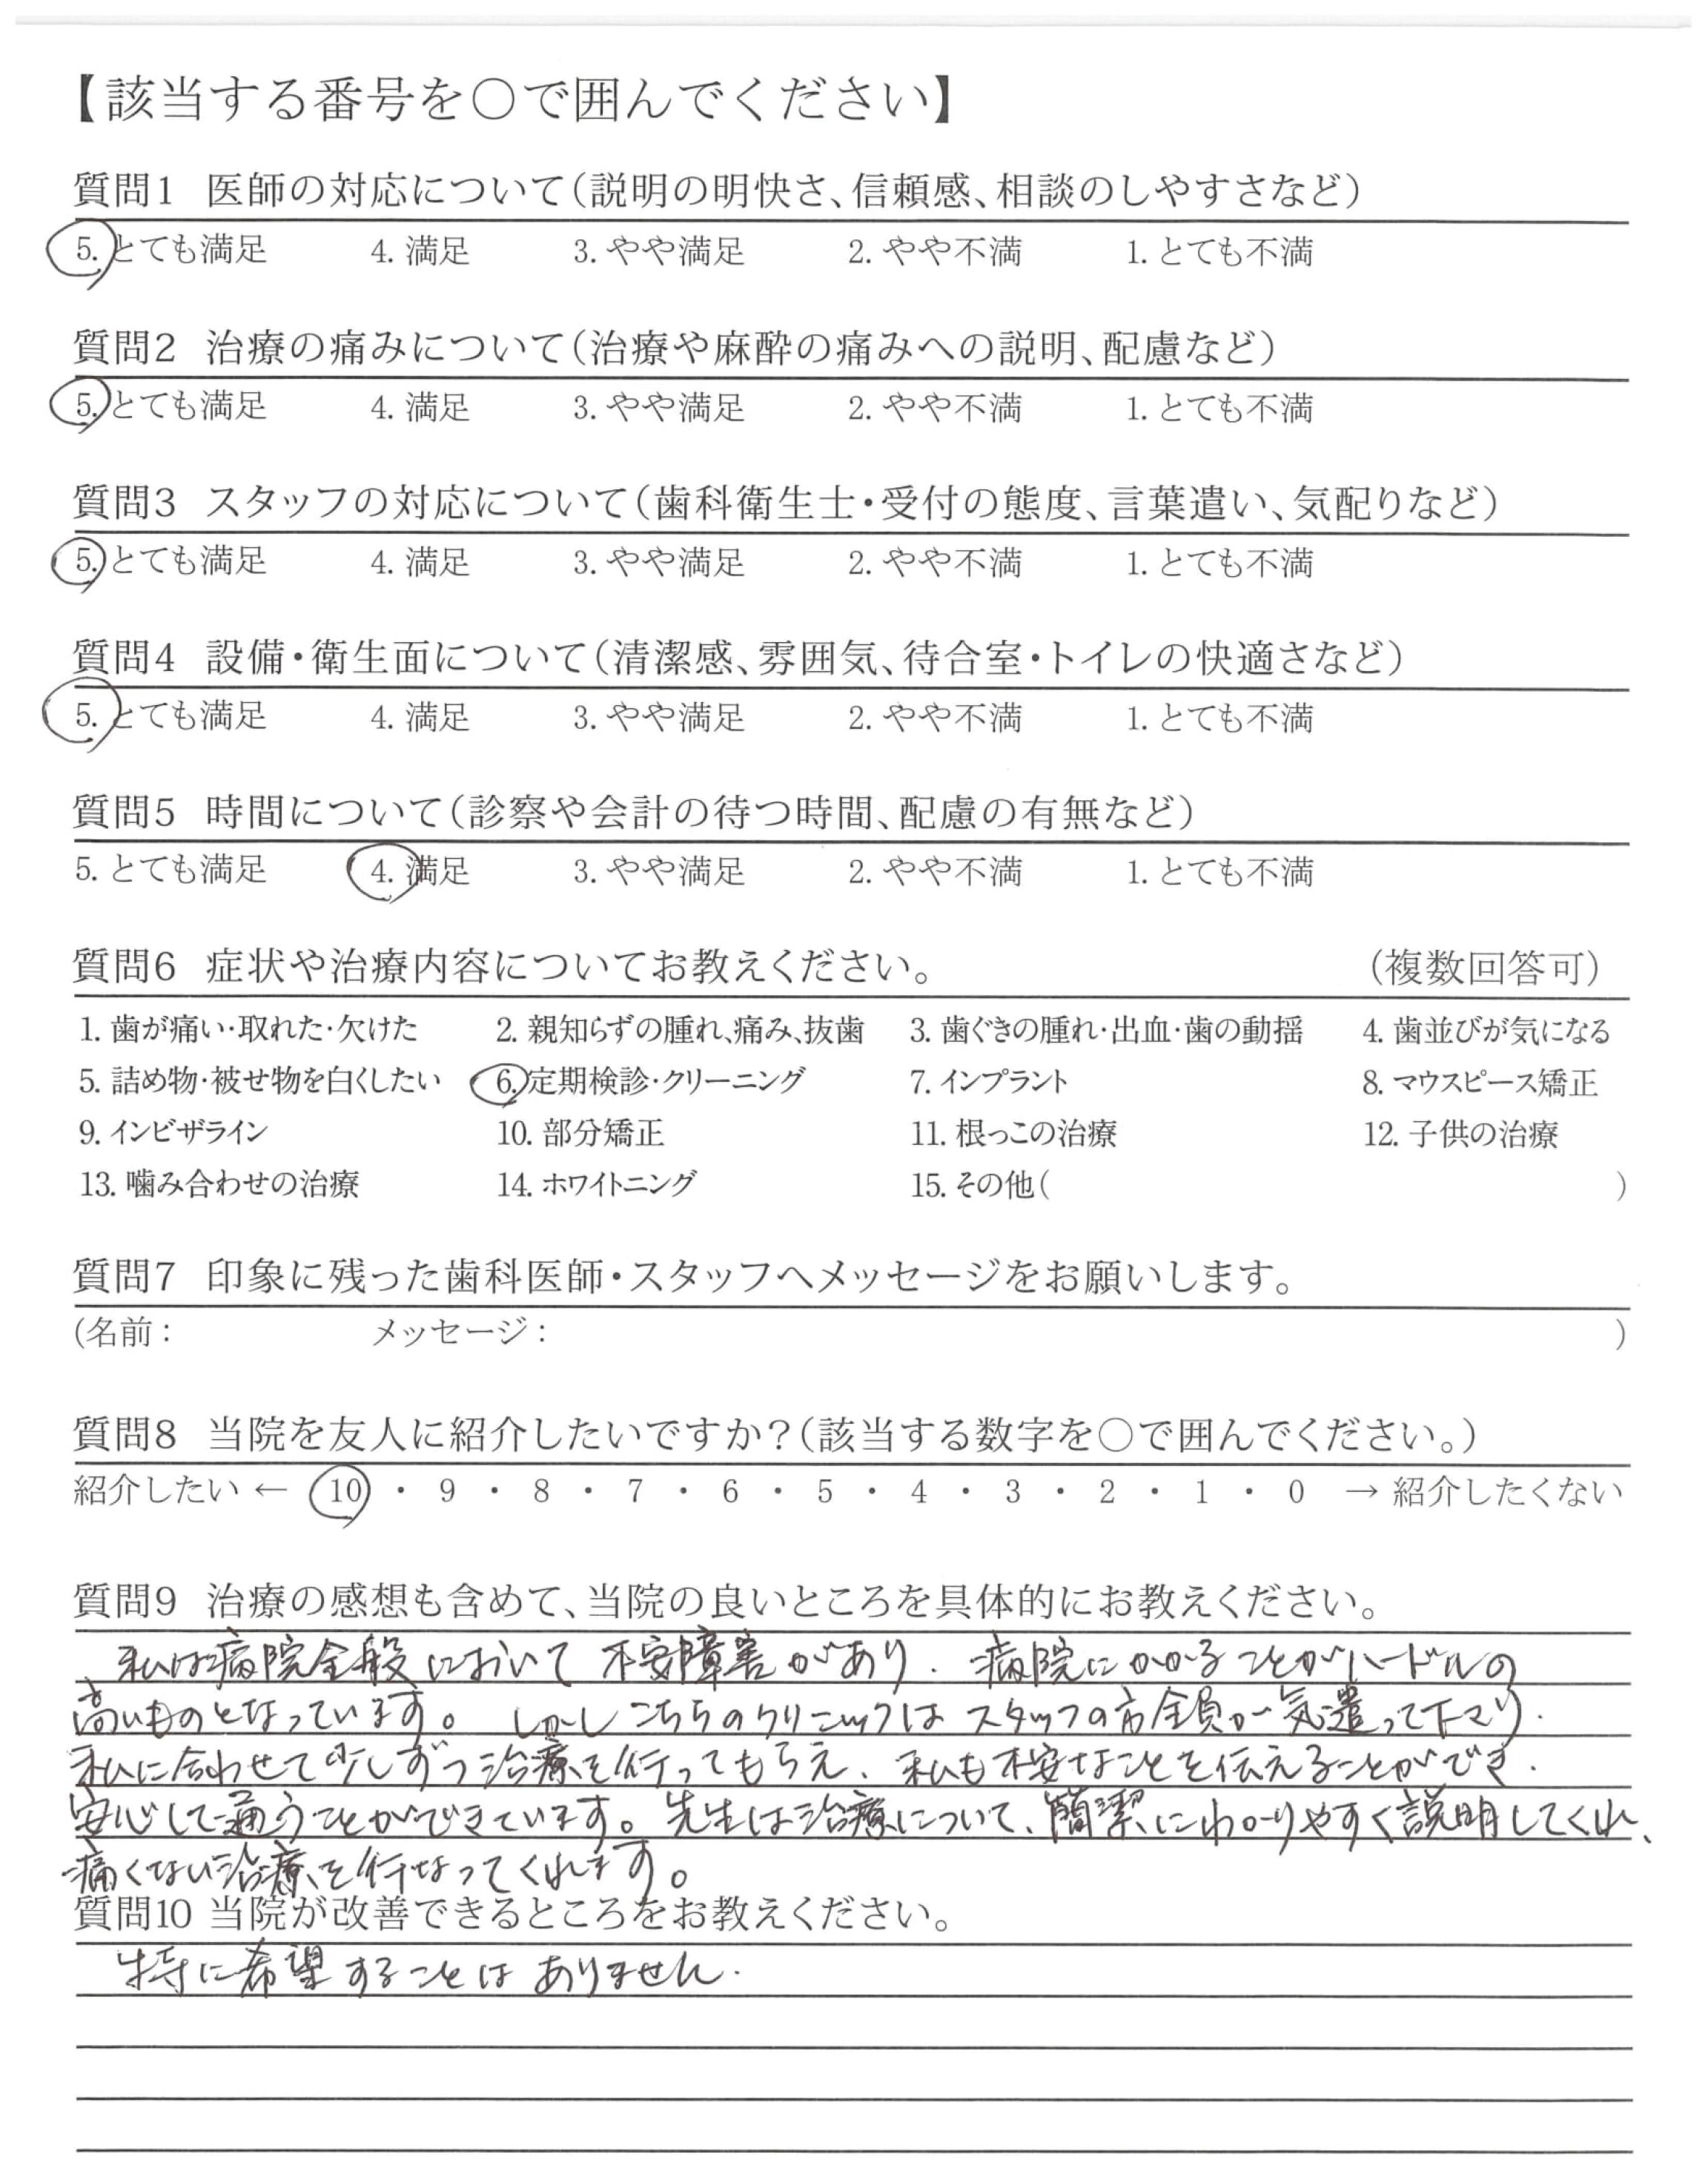 【該当する番号を○で囲んでください】
質問1 医師の対応について(説明の明快さ、信頼感、相談のしやすさなど)
5. とても満足 4. 満足 3. やや満足 2. やや不満 1. とても不満
質問2 治療の痛みについて(治療や麻酔の痛みへの説明、配慮など)
5. とても満足 4. 満足 3. やや満足 2. やや不満 1. とても不満
質問3 スタッフの対応について(歯科衛生士・受付の態度、言葉遣い、気配りなど)
5. とても満足 4. 満足 3. やや満足 2. やや不満 1. とても不満
質問4 設備・衛生面について(清潔感、雰囲気、待合室・トイレの快適さなど)
5. とても満足 4. 満足 3. やや満足 2. やや不満 1. とても不満
質問5 時間について(診察や会計の待つ時間、配慮の有無など)
5. とても満足 4. 満足 3. やや満足 2. やや不満 1. とても不満
質問6 症状や治療内容についてお教えください。 (複数回答可)
1. 歯が痛い・取れた・欠けた 2. 親知らずの腫れ、痛み、抜歯 3. 歯ぐきの腫れ・出血・歯の動揺 4. 歯並びが気になる
5. 詰め物・被せ物を白くしたい 6. 定期検診・クリーニング 7. インプラント 8. マウスピース矯正
9. インビザライン 10. 部分矯正 11. 根っこの治療 12. 子供の治療
13. 噛み合わせの治療 14. ホワイトニング 15. その他( )
質問7 印象に残った歯科医師・スタッフへメッセージをお願いします。
(名前: メッセージ: )
質問8 当院を友人に紹介したいですか?(該当する数字を○で囲んでください。)
紹介したい ← 10 ・ 9 ・ 8 ・ 7 ・ 6 ・ 5 ・ 4 ・ 3 ・ 2 ・ 1 ・ 0 → 紹介したくない
質問9 治療の感想も含めて、当院の良いところを具体的にお教えください。
私は病院全般において不安障害があり、病院にかかることがハードルの
高いものとなっています。しかしこちらのクリニックはスタッフの方全員が気遣って下さり、
私に合わせて少しずつ治療を行ってもらえ、私も不安なことを伝えることができ、
安心して通うことができています。先生は治療について、簡潔にわかりやすく説明してくれ、
痛くない治療を行なってくれます。
質問10 当院が改善できるところをお教えください。
特に希望することはありません。